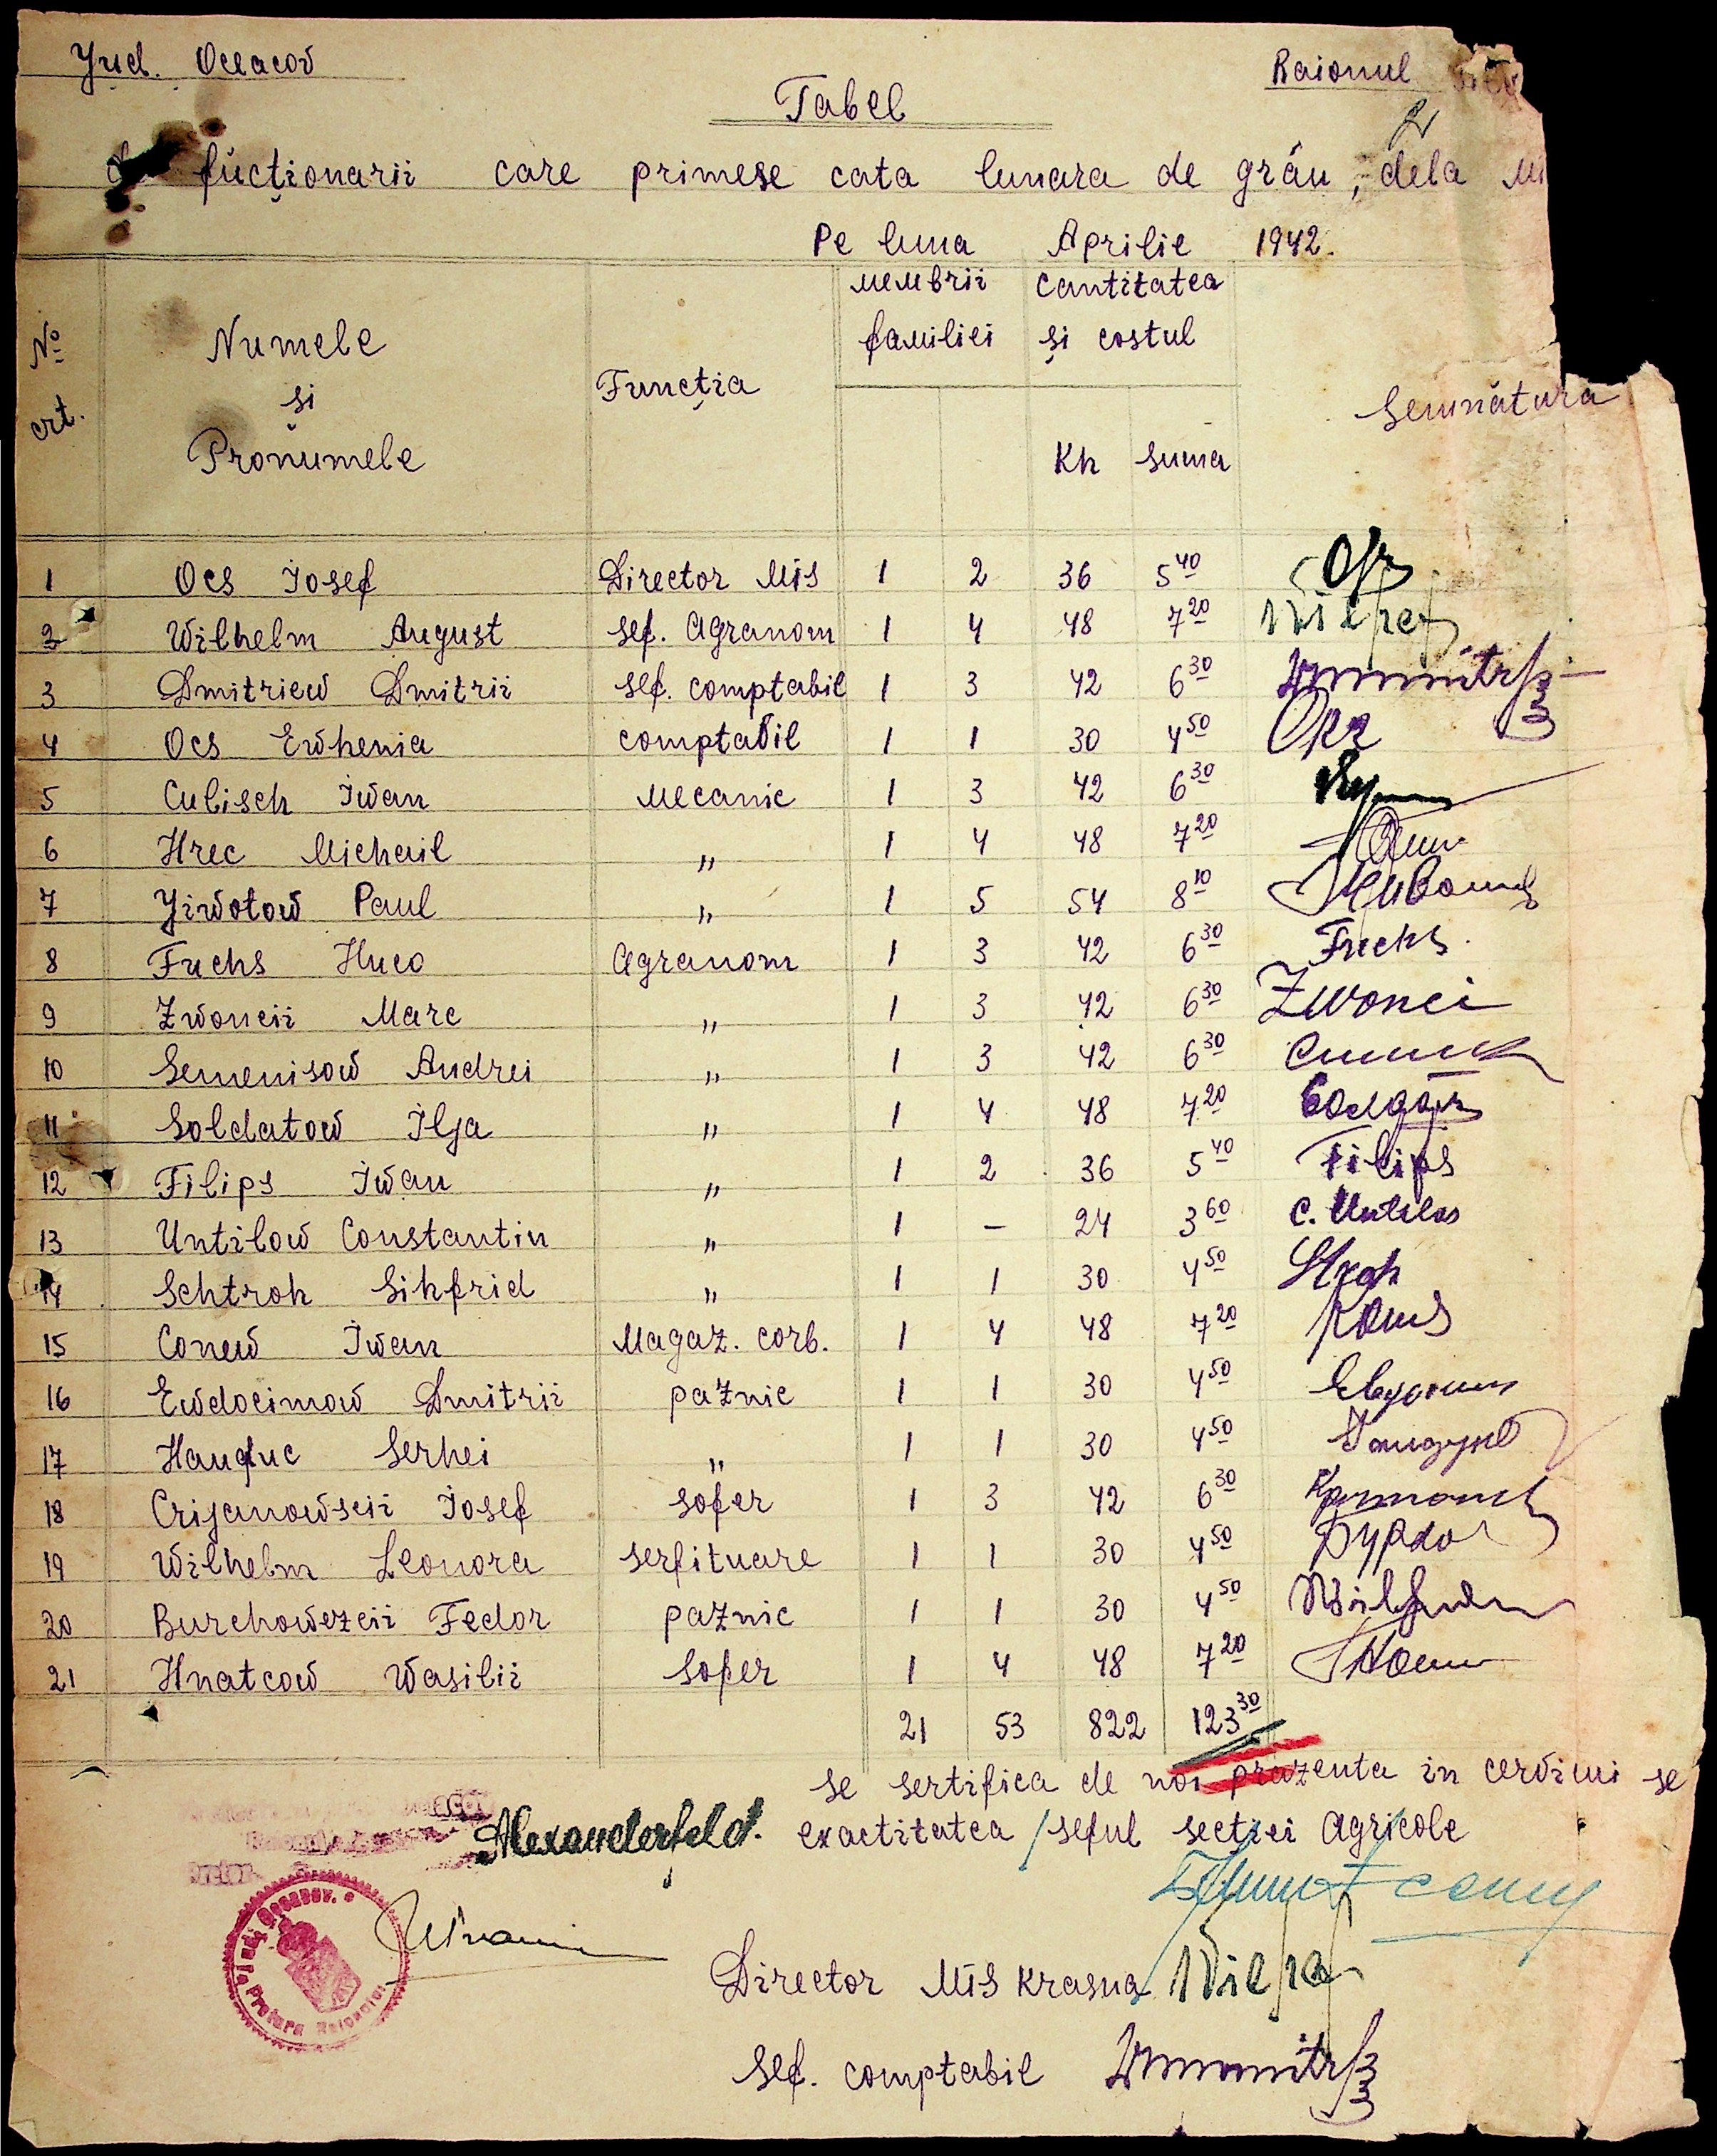 Jud. Oceacov
Raionul
Tabel
fucționarii care primese cota lunara de grâu, dela
Pe luna Aprilie 1942.
№ crt.
Numele și Pronumele
Funcția
membrii familiei
Cantitatea și costul
Kh
Suma
Semnătura
1 Ocs Iosef Director Mis 1 2 36 5 40
2 Wilhelm August sef. Agranom 1 4 48 7 20
3 Dmitriew Dmitrii sef. comptabil 1 3 42 6 30
4 Ocs Ewhenia comptabil 1 1 30 4 50
5 Culisch Iwan Mecanic 1 3 42 6 30
6 Hrec Michail " 1 4 48 7 20
7 Jiwotow Paul " 1 5 54 8 10
8 Fuchs Huco Agranom 1 3 42 6 30 Fuchs.
9 Zwoncii Marc " 1 3 42 6 30 Zwonci
10 Semenisow Andrei " 1 3 42 6 30
11 Soldatow Ilja " 1 4 48 7 20
12 Filips Iwan " 1 2 36 5 40 Filips
13 Untilow Constantin " 1 – 24 3 60 C. Untilos
14 Schtroh Sihfrid " 1 1 30 4 50 Stroh
15 Conew Iwan Magaz. corb. 1 4 48 7 20
16 Ewdocimow Dmitrii paznic 1 1 30 4 50
17 Hauduc Serhei " 1 1 30 4 50
18 Crijanowscii Iosef sofer 1 3 42 6 30
19 Wilhelm Leonora serfituare 1 1 30 4 50
20 Burchowezcii Fedor paznic 1 1 30 4 50
21 Hnatcow Wasilii sofer 1 4 48 7 20
21 53 822 123 30
se sertifica de noi prazenta in cerbimi se
Alexanderfeld.
exactitatea / seful sectiei Agricole
Director MIS Krasna
sef. comptabil